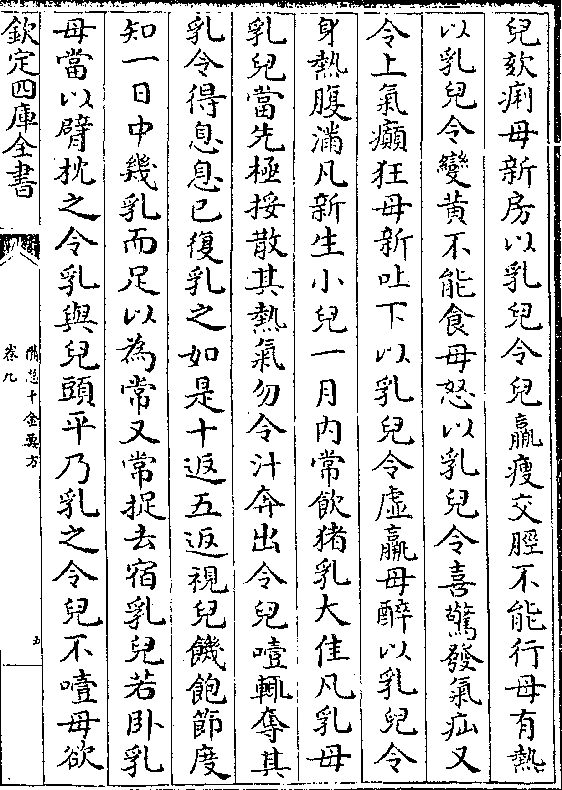 兒欬痢母新房以乳兒令兒羸瘦交脛不能行母有熱
以乳兒令變黄不能食母怒以乳兒令喜驚發氣疝又
令上氣癲狂母新吐下以乳兒令虛羸母醉以乳兒令
身熱腹滿凡新生小兒一月内常飲猪乳大佳凡乳母
乳兒當先極挼散其熱氣勿令汁奔出令兒噎輒奪其
乳令得息息已復乳之如是十返五返視兒饑飽節度
知一日中幾乳而足以為常又常捉去宿乳兒若卧乳
母當以臂枕之令乳與兒頭平乃乳之令兒不噎母欲
欽定四庫全書
備急千金要方
卷九
五